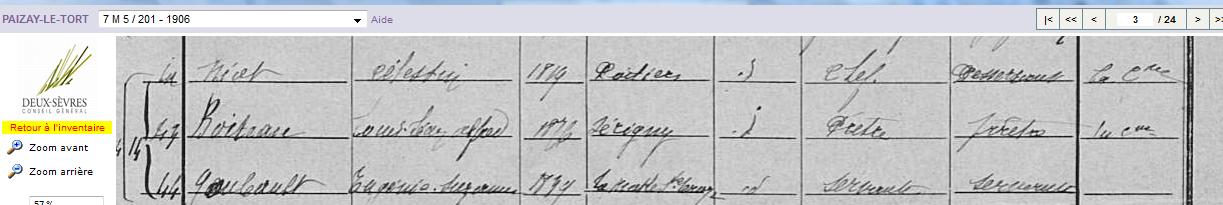 PAIZAY-LE-TORT 7 M 5 / 201 - 1906 Aide |< << < 3 / 24 > >>
DEUX-SÈVRES
CONSEIL GÉNÉRAL
Retour à l'inventaire
Zoom avant
Zoom arrière
57 %
Nicot Célestin 1819 Poitiers id Chef Desservant la Cne
43 Boiteau Louis 1876 Périgny id Prêtre la Cne
44 Goubault Eugénie Suzanne id servante servante
4 14